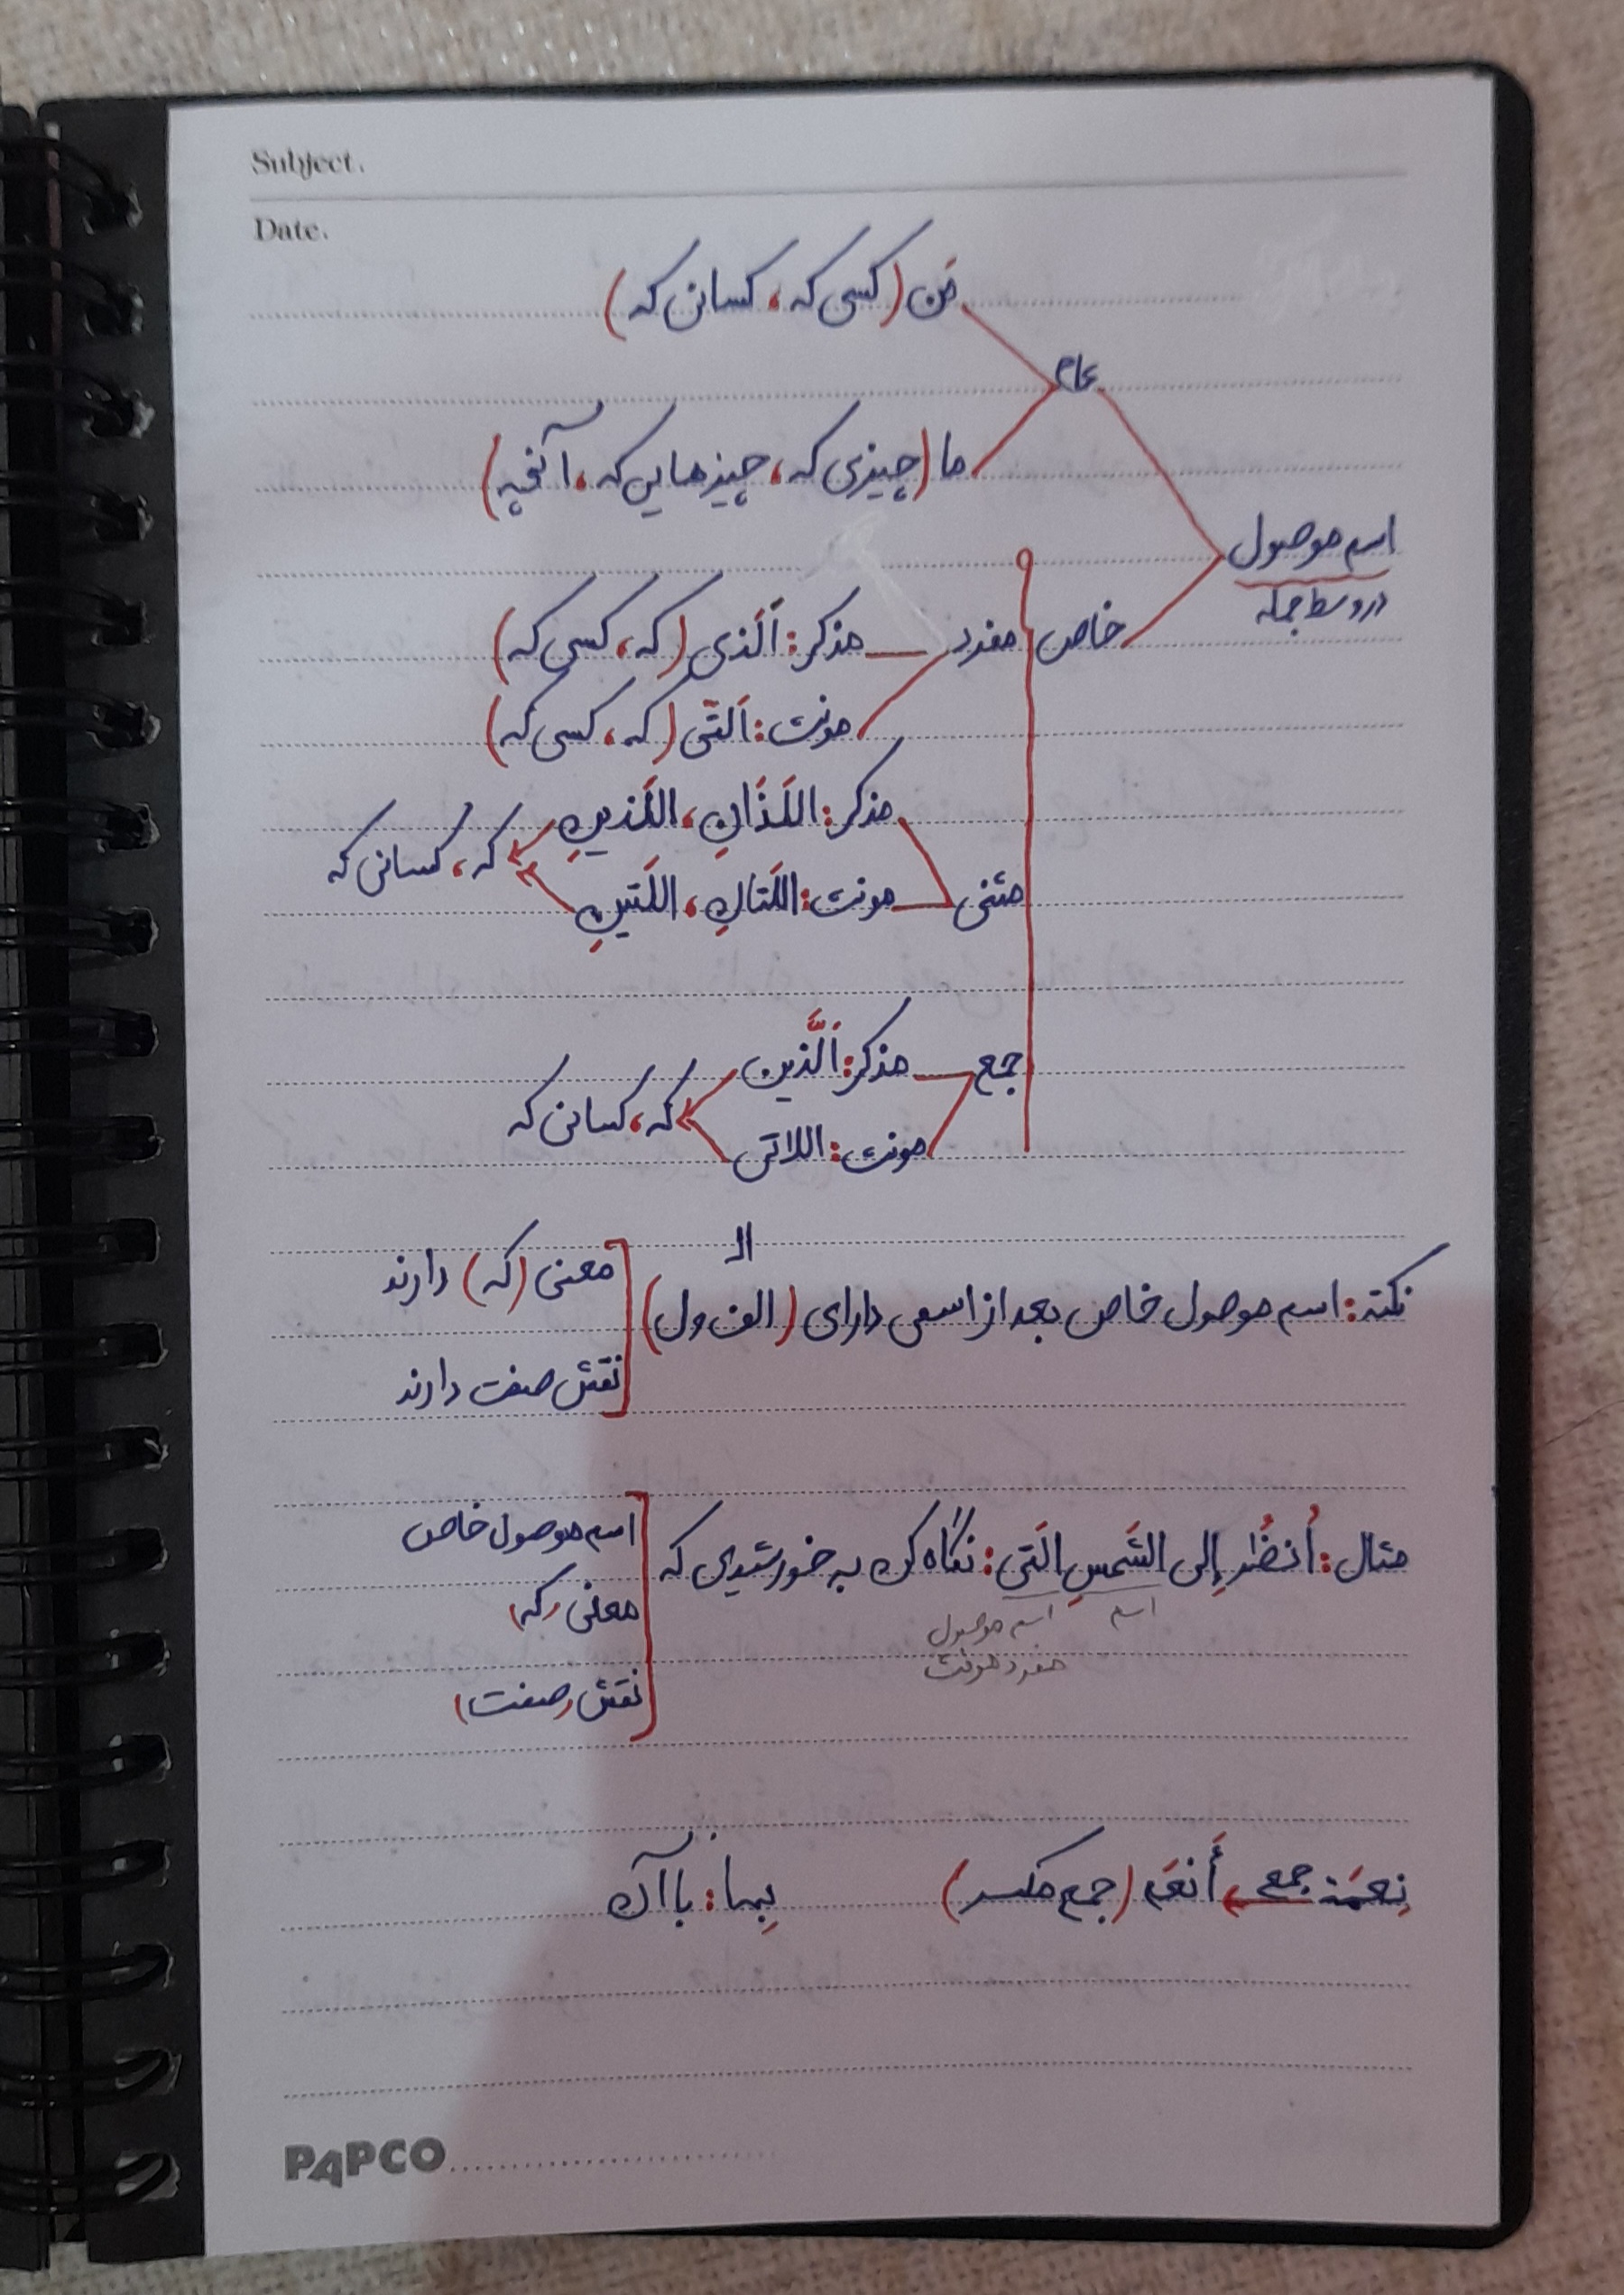 Subject.
Date.
مَن (کسی که، کسانی که)
عام
ما (چیزی که، چیزهایی که، آنچه)
اسم موصول
در وسط جمله
خاص مفرد مذکر: اَلَّذی (که، کسی که)
مونث: اَلَّتی (که، کسی که)
مذکر: اللَّذَانِ، اللَّذَینِ
که، کسانی که
مثنی مونث: اللَّتانِ، اللَّتَینِ
جمع مذکر: اَلَّذینَ
که، کسانی که
مونث: اللاتی
الـ
نکته: اسم موصول خاص بعد از اسمی دارای (الف و ل)
معنی (که) دارند
نقش صفت دارند
مثال: اُنضُر إلی الشَّمسِ الَّتی: نگاه کن به خورشیدی که
اسم موصول خاص
معنی (که)
نقش (صفت)
اسم
اسم موصول
مفرد مونث
نِعمَة جمع أَنعَم (جمع مکسر)
بِها: با آن
PAPCO